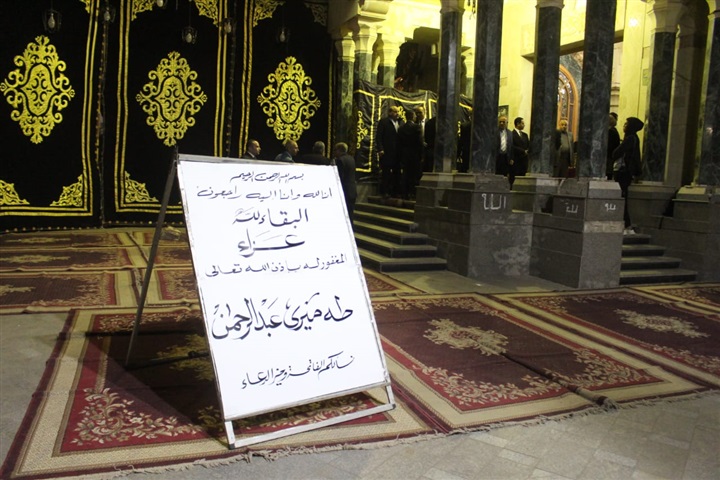 بسم الله الرحمن الرحيم
إنا لله وإنا إليه راجعون
البقاء لله
عزاء
المغفور له بإذن الله تعالى
طه ميزى عبد الرحمن
نسألكم الفاتحة وخير الدعاء
الله
لله